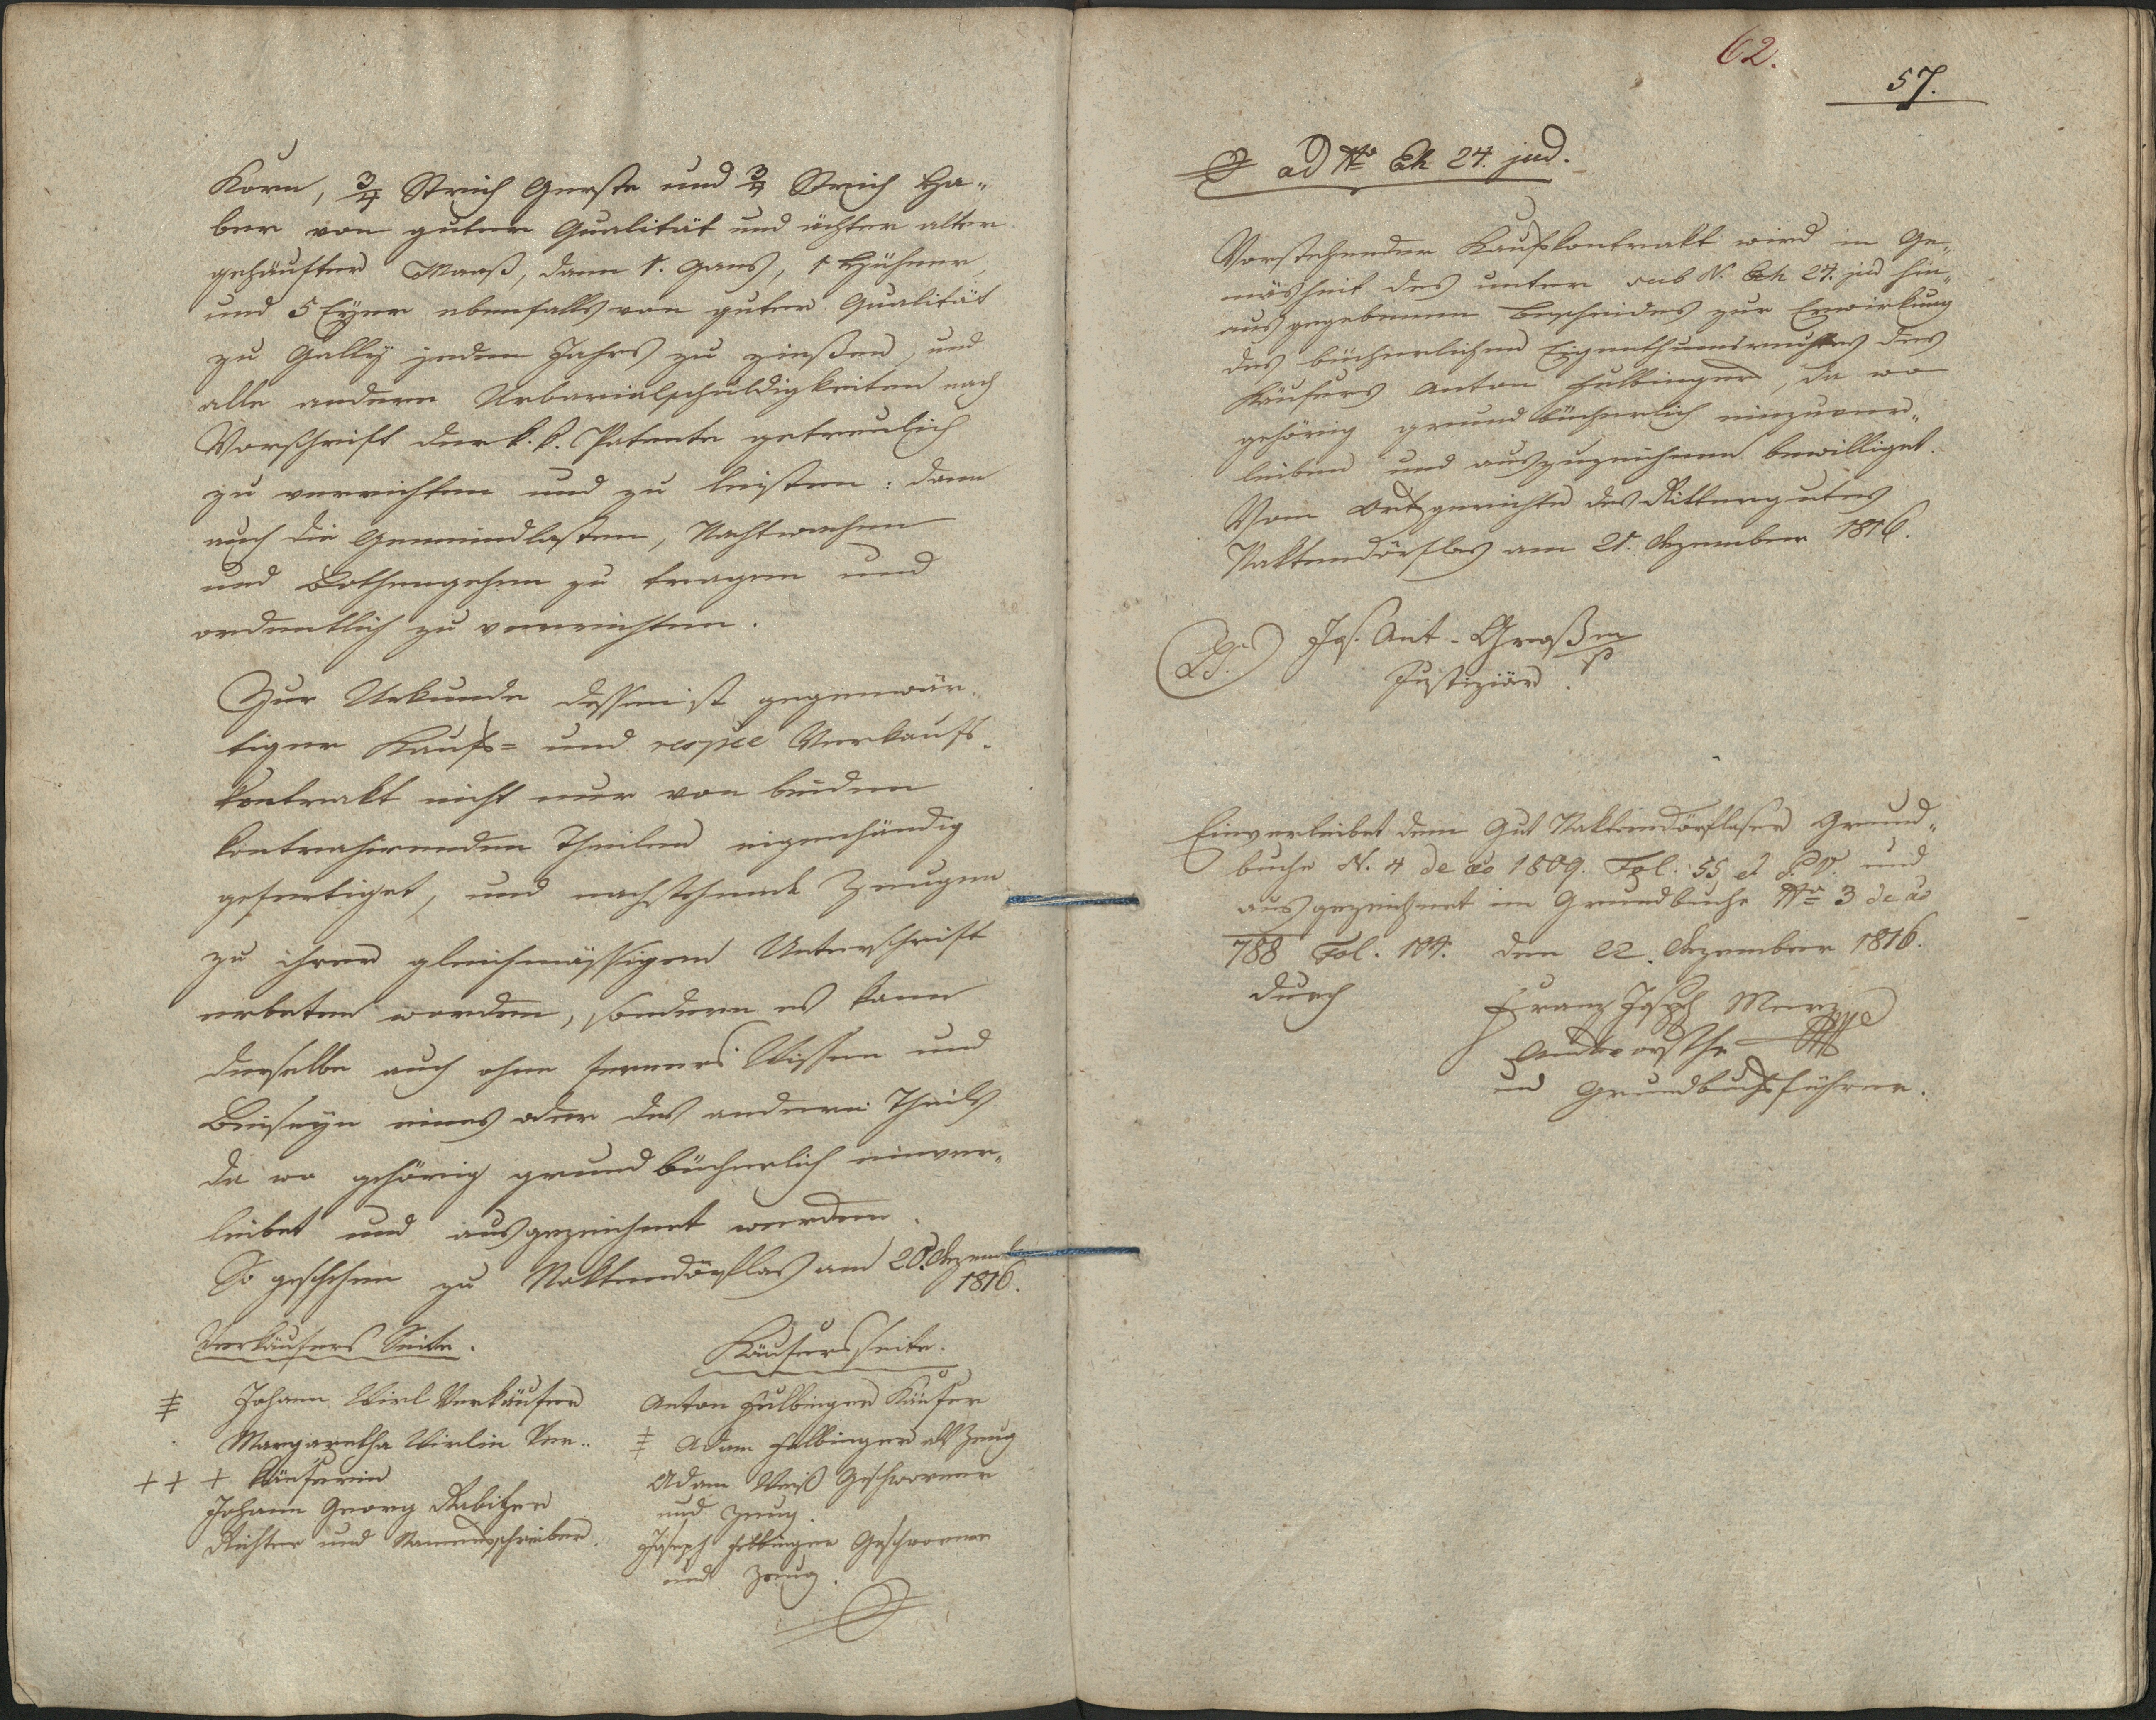 Korn, 3/4 Strich Gerste und 3/4 Strich Ha„
ber von guter Qualität und ächter alter
gehäufter Maaß, dann 1. Gans, 1 Hühner,
und 5 Eyer ebenfalls von guter Qualität
zu Gally jeden Jahrs zu zinßen, und
alle andern Urbarialschuldigkeiten nach
Vorschrift der k. k. Patente getreulich
zu verrichten und zu leisten: dann
auch die Gemeindlasten, Nachtwachen
und Bothengehen zu tragen und
ordentlich zu verrichten.
Zur Urkunde dessen ist gegenwär„
tiger Kaufs= und respce Verkaufs„
kontrakt nicht nur von beiden
kontrahirenden Theilen eigenhändig
gefertiget, und nachstehende Zeugen
zu ihrer gleichmässigen Unterschrift
erbeten worden, sondern es kann
derselbe auch ohne ferners Wissen und
Beiseyn eines oder des andern Theils
da wo gehörig grundbücherlich einver„
leibet und ausgezeichnet werden.
So geschehen zu Naktendörflas am 20. Dezemb
1816.
Verkäufers Seite.
‡ Johann Wirl Verkäufer
Margaretha Wirlin Ver„
+ + + käuferin
Johann Georg Rabitzer
Richter und Namensschreiber.
Käufersseite.
Anton Fulbinger Käufer
‡ Adam Fulbinger als Zeug
Adam Weiß Geschworner
und Zeug.
Joseph Geschworner
und Zeug.
62.
57.
ad No Eh 24. jud.
Vorstehender Kaufskontrakt wird in Ge„
mäsheit des unter sub N. Eh 24. jud hin„
ausgegebenen Bescheides zur Erwirkung
des bücherlichen Eigenthumsrechtes des
Käufers Anton Fulbinger, da wo
gehörig grundbücherlich einzuver„
leiben und auszuzeichnen bewilliget.
Vom Ortsgerichte des Ritterguts
Naktendörflas am 21. Dezember 1816.
(LS.) Jos. Ant. Graßm/p
Justiziär.
Einverleibet dem Gut Naktendörflaser Grund„
buche N. 4 de ao 1809. Fol. 55 et P.V. und
ausgezeichnet im Grundbuche No 3 de ao
788 Fol. 104. den 22. Dezember 1816.
durch
Franz Joseph Merz
Amtsvorsteher
und Grundbuchsführer.